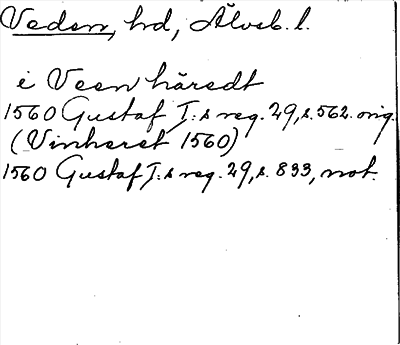 Veden, hd, Älvsb. l.
i Veen häredt
1560 Gustaf I:s reg. 29, s. 562. orig.
(Vinheret 1560)
1560 Gustaf I:s reg. 29, s. 833, not.